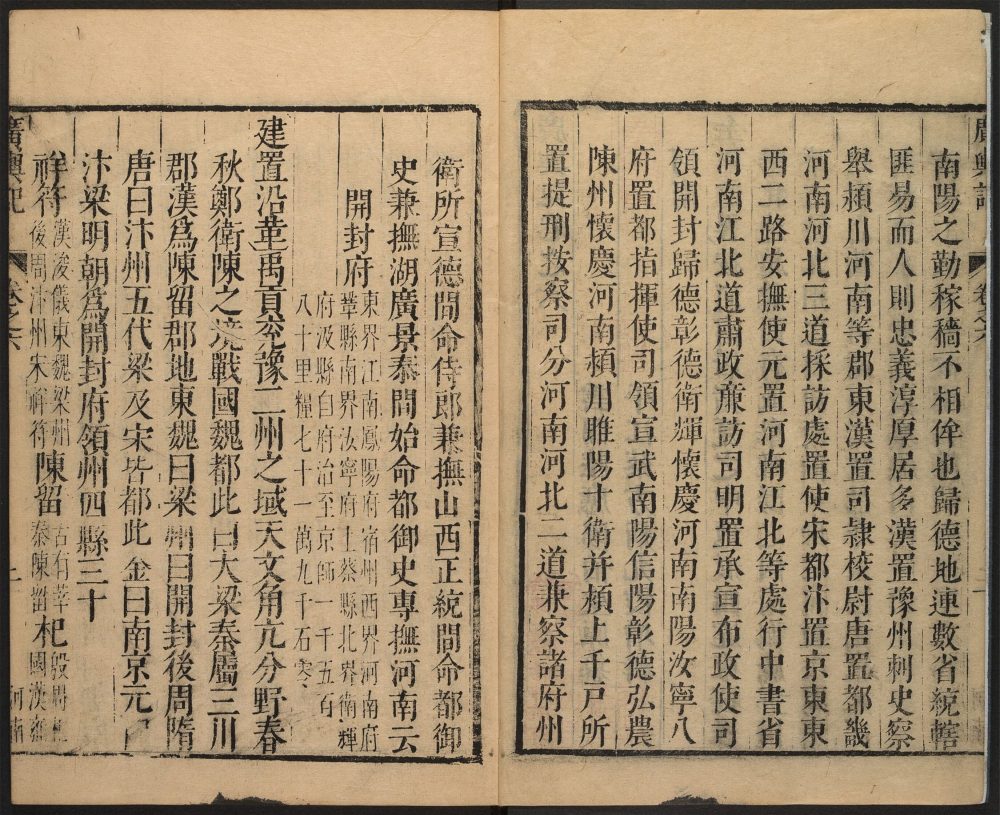 廣輿記
南陽之勤稼穡不相侔也歸德地連數省統轄
匪易而人則忠義淳厚居多漢置豫州刺史察
舉潁川河南等郡東漢置司隸校尉唐置都畿
河南河北三道採訪處置使宋都汴置京東東
西二路安撫使元置河南江北等處行中書省
河南江北道肅政廉訪司明置承宣布政使司
領開封歸德彰德衛輝懷慶河南南陽汝寧八
府置都指揮使司領宣武南陽信陽彰德弘農
陳州懷慶河南潁川雎陽十衛并潁上千戸所
置提刑按察司分河南河北二道兼察諸府州
衛所宣德間命侍郎兼撫山西正統間命都御
史兼撫湖廣景泰間始命都御史專撫河南云
開封府
東界江南鳳陽府宿州西界河南府
鞏縣南界汝寧府上蔡縣北界衛輝
府汲縣自府治至京師一千五百
八十里糧七十一萬九千石零
建置沿革禹貢兖豫二州之域天文角亢分野春
秋鄭衛陳之境戰國魏都此曰大梁秦屬三川
郡漢爲陳留郡地東魏曰梁州曰開封後周隋
唐曰汴州五代梁及宋皆都此金曰南京元曰
汴梁明朝爲開封府領州四縣三十
祥符漢浚儀東魏梁州後周汴州宋祥符陳留古有莘殷周秦陳留杞國漢
廣輿記
卷之六
二
河南